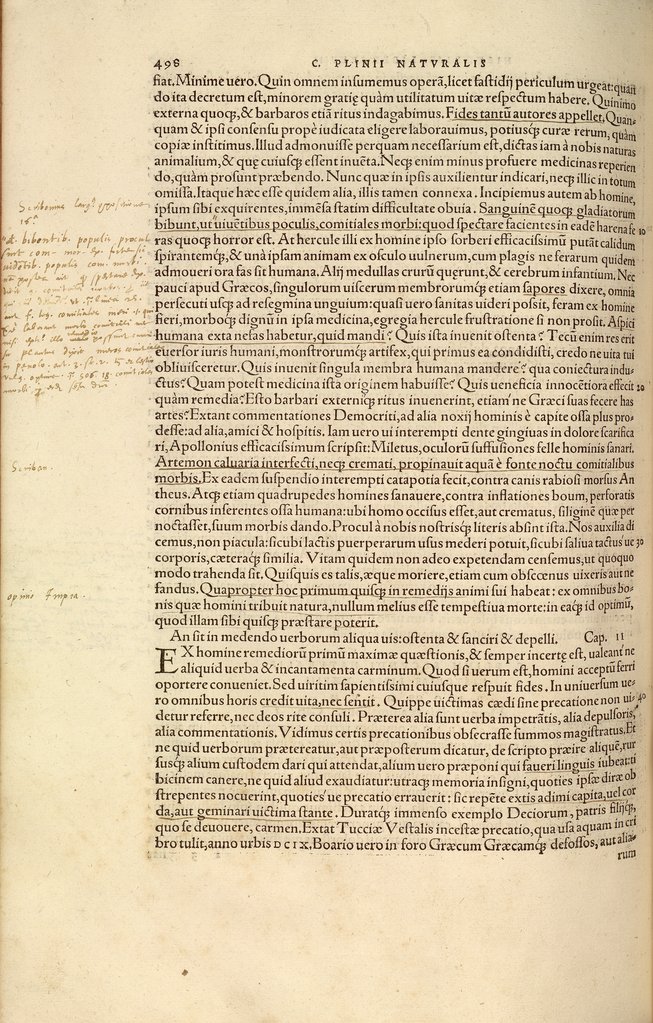 498 C. PLINII NATVRALIS
fiat. Minime uero. Quin omnem insumemus operã, licet fastidij periculum urgeat: quãn
do ita decretum est, minorem gratię quàm utilitatum uitæ respectum habere. Quinimo
externa quoqȝ, & barbaros etiã ritus indagabimus. Fides tantũ autores appellet. Quan⸗
quam & ipsi consensu propè iudicata eligere laborauimus, potiusqȝ curæ rerum, quàm
copiæ institimus. Illud admonuisse perquam necessarium est, dictas iam à nobis naturas
animalium, & quę cuiusqȝ essent inuẽta. Neqȝ enim minus profuere medicinas reperien
do, quàm prosunt præbendo. Nunc quæ in ipsis auxilientur indicari, neqȝ illic in totum
omissa. Itaque hæc esse quidem alia, illis tamen connexa. Incipiemus autem ab homine,
ipsum sibi exquirentes, immẽsa statim difficultate obuia. Sanguinẽ quoqȝ gladiatorum
bibunt, ut uiuẽtibus poculis, comitiales morbi: quod spectare facientes in eadẽ harena fe 10
ras quoqȝ horror est. At hercule illi ex homine ipso sorberi efficacissimũ putãt calidum
spirantemqȝ, & unà ipsam animam ex osculo uulnerum, cum plagis ne ferarum quidem
admoueri ora fas sit humana. Alij medullas crurũ quęrunt, & cerebrum infantium. Nec
pauci apud Græcos, singulorum uiscerum membrorumqȝ etiam sapores dixere, omnia
persecuti usqȝ ad resegmina unguium: quasi uero sanitas uideri possit, feram ex homine
fieri, morboqȝ dignũ in ipsa medicina, egregia hercule frustratione si non prosit. Aspici
humana exta nefas habetur, quid mandi? Quis ista inuenit ostenta? Tecũ enim res erit
euersor iuris humani, monstrorumqȝ artifex, qui primus ea condidisti, credo ne uita tui
obliuisceretur. Quis inuenit singula membra humana mandere? qua coniectura indu⸗
ctus? Quam potest medicina ista originem habuisse? Quis ueneficia innocẽtiora effecit 20
quàm remedia? Esto barbari externiqȝ ritus inuenerint, etiam ne Græci suas fecere has
artes? Extant commentationes Democriti, ad alia noxij hominis è capite ossa plus pro⸗
desse: ad alia, amici & hospitis. Iam uero ui interempti dente gingiuas in dolore scarifica
ri, Apollonius efficacissimum scripsit: Miletus, oculorũ suffusiones felle hominis sanari.
Artemon caluaria interfecti, neqȝ cremati, propinauit aquã è fonte noctu comitialibus
morbis. Ex eadem suspendio interempti catapotia fecit, contra canis rabiosi morsus An
theus. Atqȝ etiam quadrupedes homines sanauere, contra inflationes boum, perforatis
cornibus inserentes ossa humana: ubi homo occisus esset, aut crematus, siliginẽ quæ per
noctasset, suum morbis dando. Procul à nobis nostrisqȝ literis absint ista. Nos auxilia di
cemus, non piacula: sicubi lactis puerperarum usus mederi potuit, sicubi saliua tactus ue 30
corporis, cæteraqȝ similia. Vitam quidem non adeo expetendam censemus, ut quoquo
modo trahenda sit. Quisquis es talis, æque moriere, etiam cum obscœnus uixeris aut ne
fandus. Quapropter hoc primum quisqȝ in remedijs animi sui habeat: ex omnibus bo⸗
nis quæ homini tribuit natura, nullum melius esse tempestiua morte: in eaqȝ id optimũ,
quod illam sibi quisqȝ præstare poterit.
An sit in medendo uerborum aliqua uis: ostenta & sanciri & depelli. Cap. II
EX homine remediorũ primũ maximæ quæstionis, & semper incertę est, ualeant ne
aliquid uerba & incantamenta carminum. Quod si uerum est, homini acceptũ ferri
oportere conueniet. Sed uiritim sapientissimi cuiusque respuit fides. In uniuersum ue⸗
ro omnibus horis credit uita, nec sentit. Quippe uictimas cædi sine precatione non ui⸗ 40
detur referre, nec deos rite consuli. Præterea alia sunt uerba impetrãtis, alia depulsoris,
alia commentationis. Vidimus certis precationibus obsecrasse summos magistratus. Et
ne quid uerborum prætereatur, aut præposterum dicatur, de scripto præire aliquẽ, rur
susqȝ alium custodem dari qui attendat, alium uero præponi qui faueri linguis iubeat: ti
bicinem canere, ne quid aliud exaudiatur: utraqȝ memoria insigni, quoties ipsæ diræ ob
strepentes nocuerint, quoties ue precatio errauerit: sic repẽte extis adimi capita, uel cor
da, aut geminari uictima stante. Duratqȝ immenso exemplo Deciorum, patris filijqȝ,
quo se deuouere, carmen. Extat Tucciæ Vestalis incestæ precatio, qua usa aquam in cri
bro tulit, anno urbis DCIX. Boario uero in foro Græcum Græcamqȝ defossos, aut alia⸗
rum
Scribonius
Scribon.